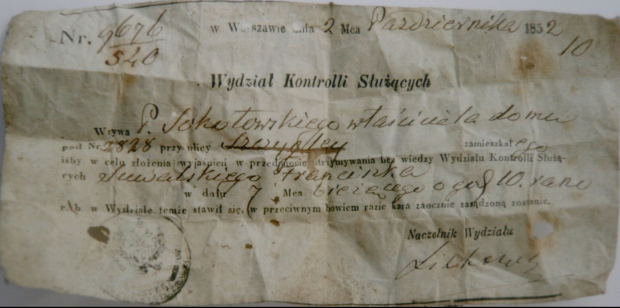 Nr. 9676 w Warszawie dnia 2 Mca Pazdziernika 1852
540 10
Wydział Kontrolli Służących
Wzywa P. Sokołowskiego właściciela domu
pod Nr. 2828 przy ulicy zamieszkałego
iżby w celu złożenia wyjaśnień w przedmiocie utrzymywania bez wiedzy Wydziału Kontrolli Służą-
cych Suwalskiego Franciszka
w dniu 7 Mca bieżącego o god 10. rano
w Wydziale temże stawił się, w przeciwnym bowiem razie kara zaocznie zarządzoną zostanie.
Naczelnik Wydziału